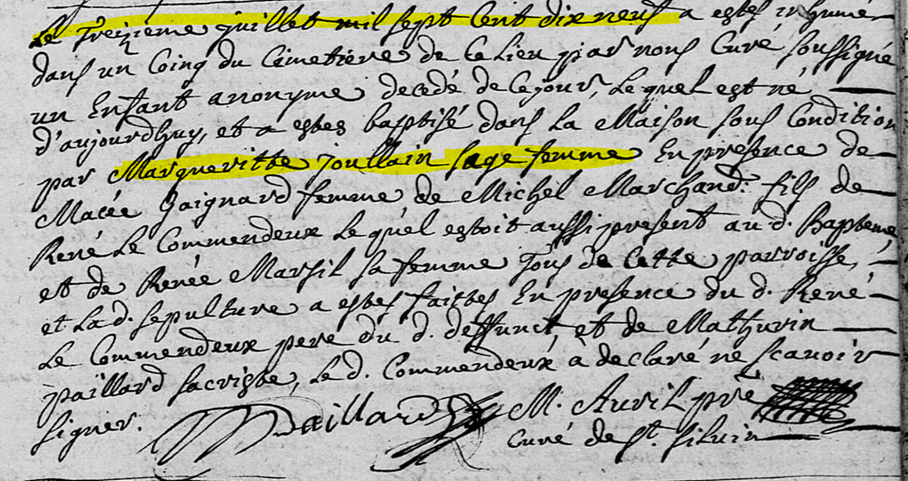 Le Treizieme juillet mil sept cent dix neuf a estes inhumé
dans un Coing du Cimetiere de ce lieu par nous Curé soussigné
un Enfant anonyme decedé de ce jour, Le quel est né
d'aujourdhuy, et a estes baptisé dans la Maison sous Condition
par Margueritte Joullain sage femme En presence de
Macée Gaignard femme de Michel Marchand. fils de
René Le Commendeux Le quel estoit aussi present au d. Bapteme
et de Renée Marsil sa femme Tous de Cette parroisse,
et La d. sepulture a estes faittes En presence du d. René
Le Commendeux pere du d. deffunct et de Mathurin
paillard sacriste, Le d. Commendeux à declaré ne scavoir
signer. Paillard M. Auril pre
Curé de St. Siluin